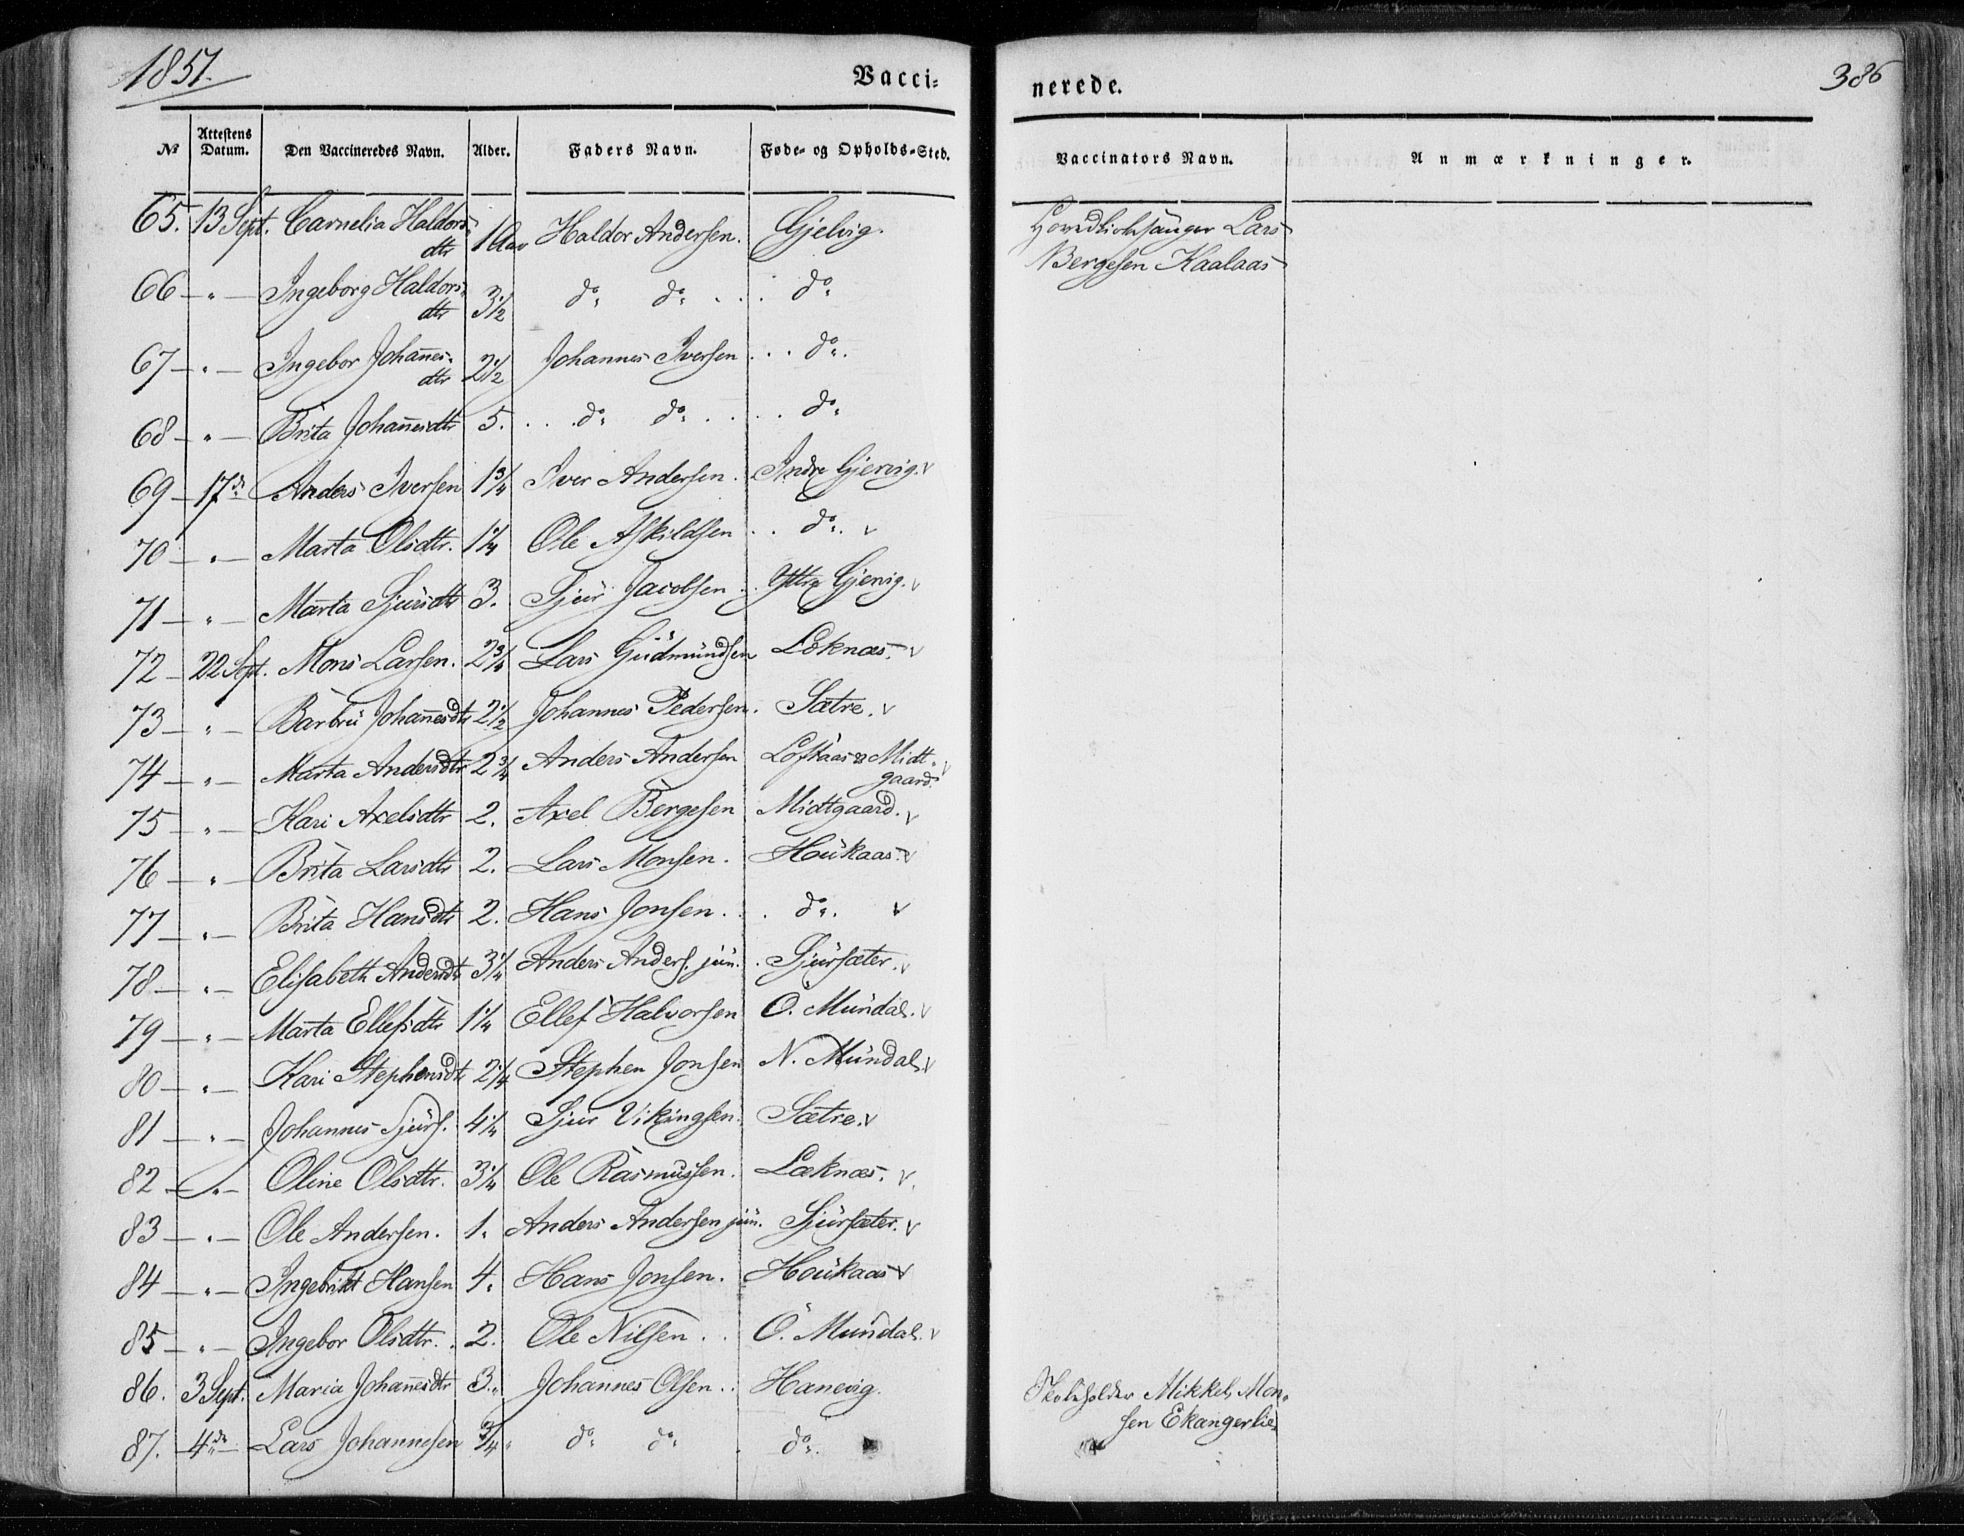 1851.
Vacci=
nerede.
386
№ Attestens Datum. Den Vaccineredes Navn. Alder. Faders Navn. Føde- og Opholds-Sted.
Vaccinators Navn. Anmærkninger.
65. 13 Sept. Carnelia Haldors- dtr 1 Aar Haldor Andersen. Gjelvig.
Lars
Bergesen Kaalaas
66 — " — Ingeborg Haldors- dtr 3½ do do . . . do
67 — " — Ingebor Johan̄es- dtr 2½ Johannes Iversen . . do.
68 — " — Brita Johan̄esdtr 5. . . do do . . . do
69 — 17 d: Anders Iversen 1¾ Iver Andersen. Indre Gjervig. v
70 — " — Marta Olsdtr. 1¼ Ole Askildsen . . do. v
71 — " — Marta Sjursdtr 3. Sjur Jacobsen . . Yttre Gjervig. v
72 — 22 Sept. Mons Larsen. 2¾ Lars Gudmundsen Lœknæs. v
73 — " Barbru Johan̄esdtr 2½ Johannes Pedersen. Sætre. v
74 — " — Marta Andersdtr 2¾ Anders Andersen Loftaas v Midt- gaard. v
75 — " — Kari Axelsdtr 2. Axel Bergesen Midtgaard. v
76 — " — Brita Larsdtr 2. Lars Monsen. Houkaas. v
77 — " — Brita Hansdtr 2. Hans Jonsen. . . do. v
78 — " — Elisabeth Andersdtr 3¼ Anders Anders. jun. . Sjursæter. v
79 — " — Marta Ellefsdtr 1¼ Ellef Halvorsen O. Mundal. v
80 — " — Kari Stephensdtr 2¼ Stephen Jonsen N. Mundal. v
81 — " — Johannes Sjurs. 4¼ Sjur Vikingsen. Sætre. v
82 — " — Oline Olsdtr. 3¼ Ole Rasmussen. Læknæs. v.
83 — " — Ole Andersen. 1. Anders Andersen jun. Sjursæter. v
84 — " — Ingebrikt Hansen 4. Hans Jonsen. Houkaas v
85 — " — Ingebor Olsdtr. . 2. Ole Nilsen . . O. Mundal. v
86. 3 Sept. Maria Johan̄esdtr 3. Johannes Olsen . . Hanevig.
Skoleholder Mikkel Mon-
sen Ekangerlie
87. — 4 de — Lars Johannesen ¾ . do do . do.